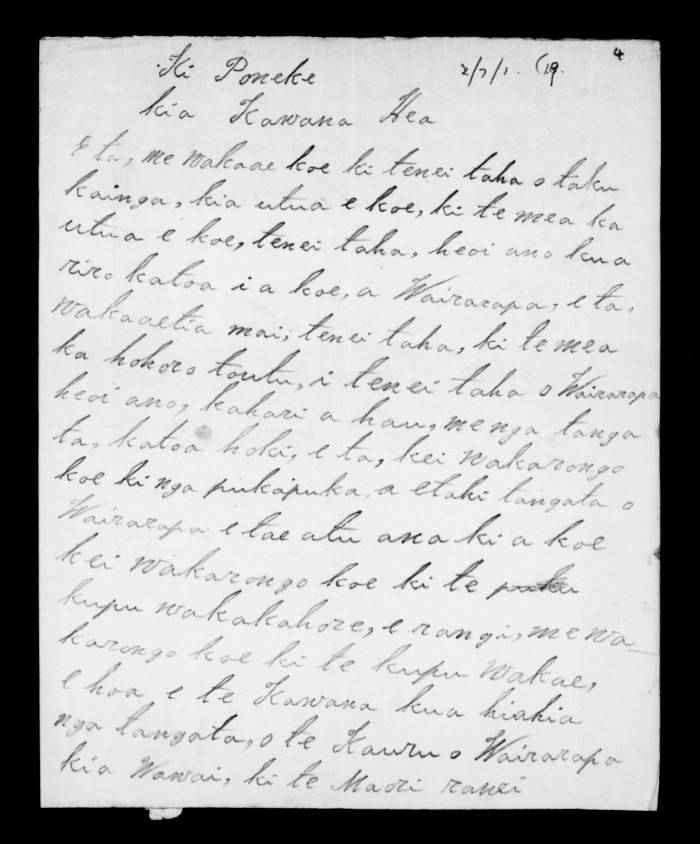 4
Ki Poneke 2/7/1. (19.
kia Kawana Hea
E ta, me wakaae koe ki tenei taha o taku
kainga, kia utua e koe, ki te mea ka
utua e koe, tenei taha, heoi ano kua
riro katoa i a koe, a Wairarapa, e ta,
wakaaetia mai; tenei taha, ki te mea
ka hohoro toutu, i tenei taha o Wairarapa
heoi ano, kahari a hau, me nga tanga
ta, katoa hoki, e ta, kei wakarongo
koe ki nga pukapuka, a etahi tangata o
Wairarapa e tae atu ana ki a koe
kei wakarongo koe ki te puku
kupu wakakahore, e rangi, me wa-
karongo koe ki te kupu wakae,
e hoa e te Kawana kua hiahia
nga tangata, o te Kauru o Wairarapa
kia Wawai, ki te Maori ranei